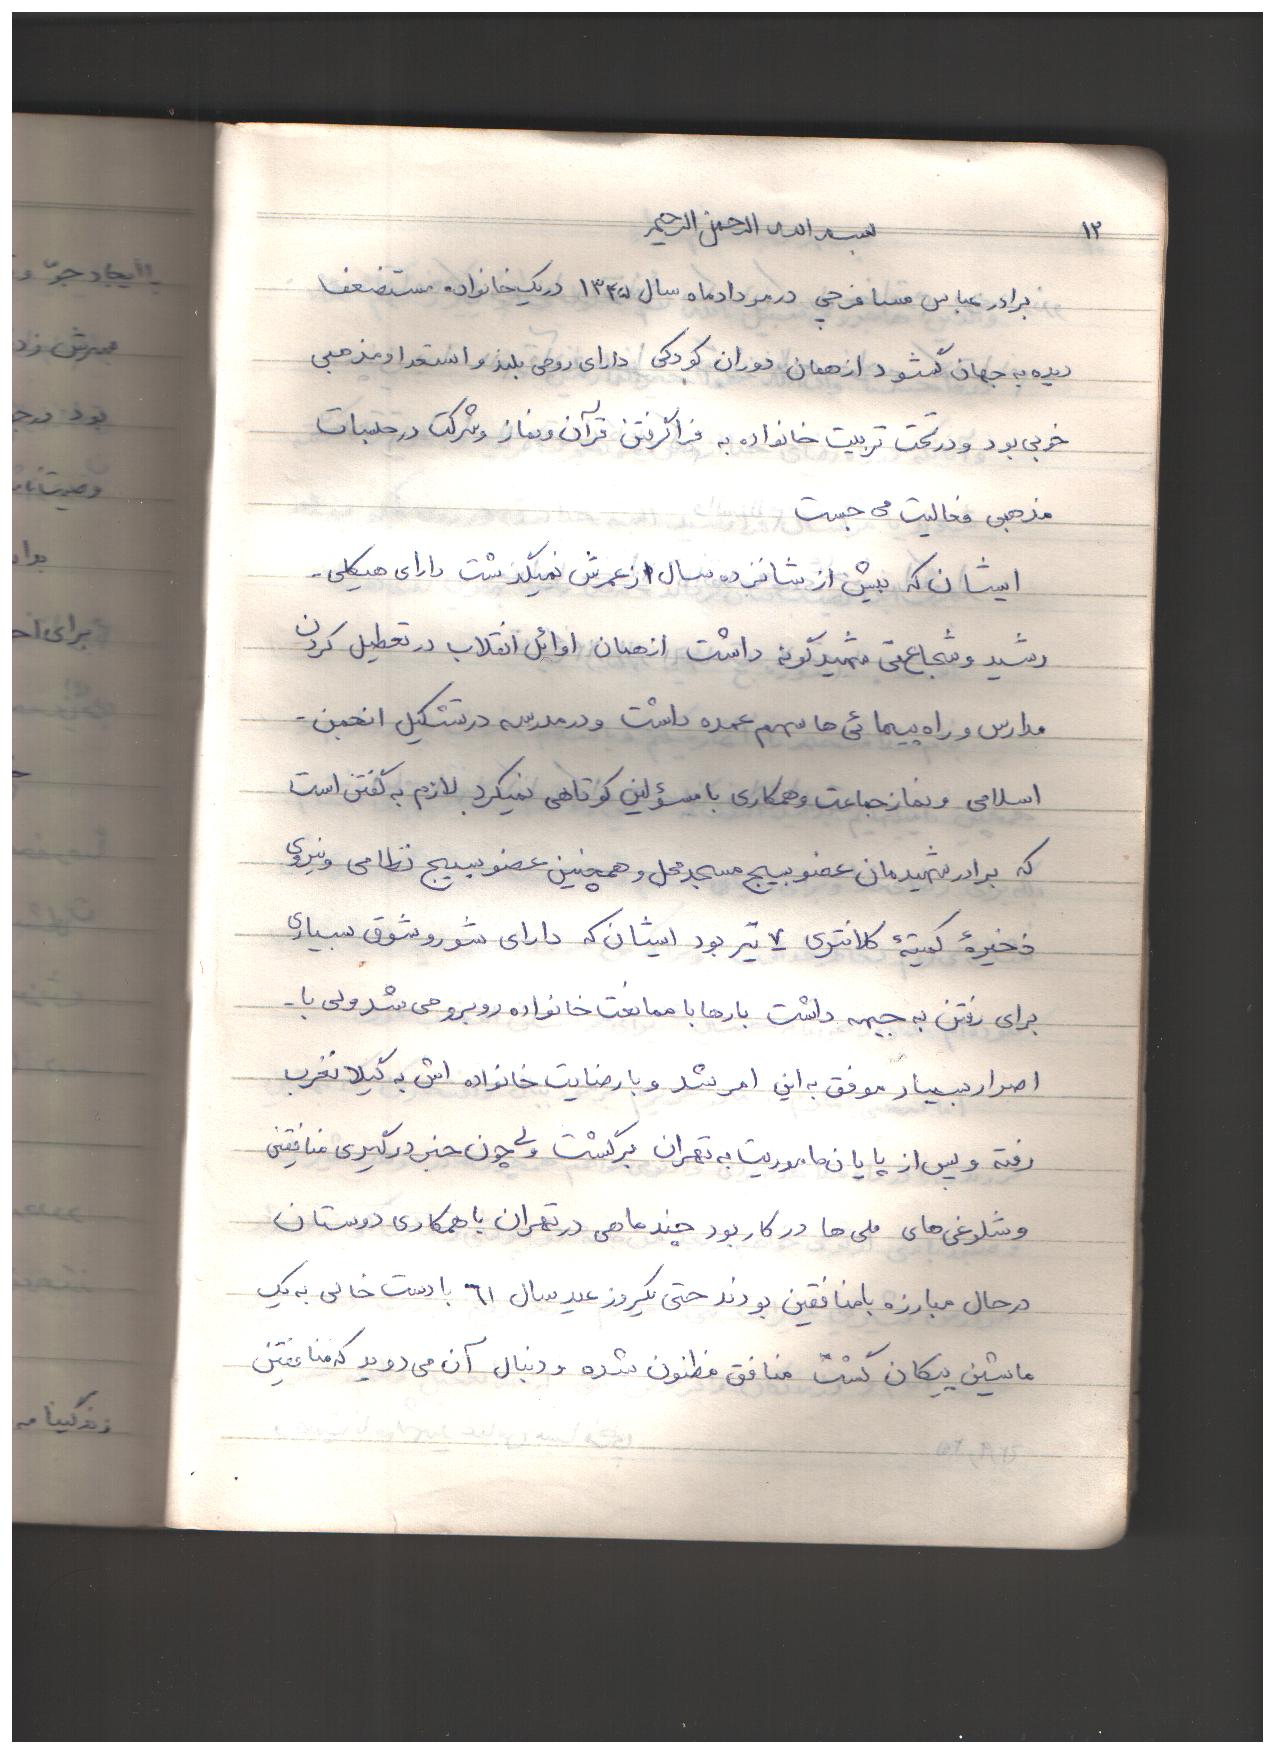 ۱۳
بسم الله الرحمن الرحیم
برادر عباس مسافرچی در مرداد ماه سال ۱۳۴۵ در یک خانواده مستضعف
دیده به جهان گشود از همان دوران کودکی دارای روحی بلند و استعداد مذهبی
خوبی بود و در تحت تربیت خانواده به فراگرفتن قرآن و نماز و شرکت در جلسات
مذهبی فعالیت می جست
ایشان که بیش از شانزده سال از عمرش نمیگذشت دارای هیکلی -
رشید و شجاعتی شهیدگونه داشت از همان اوائل انقلاب در تعطیل کردن
مدارس و راه پیمائی ها سهم عمده داشت و در مدرسه در تشکیل انجمن -
اسلامی و نماز جماعت و همکاری با مسؤلین کوتاهی نمیکرد لازم به گفتن است
که برادر شهیدمان عضو بسیج مسجد محل و همچنین عضو بسیج نظامی و نیروی
ذخیرهٔ کمیتهٔ کلانتری ۷ تیر بود ایشان که دارای شور و شوق بسیاری
برای رفتن به جبهه داشت بارها با ممانعت خانواده روبرو می شد ولی با -
اصرار بسیار موفق به این امر شد و با رضایت خانواده اش به گیلانغرب
رفته و پس از پایان ماموریت به تهران برگشت ولی چون خبر درگیری منافقین
و شلوغی های ملی ها در کار بود چند ماهی در تهران با همکاری دوستان
در حال مبارزه با منافقین بودند حتی یکروز عید سال ۶۱ با دست خالی به یک
ماشین پیکان گشت منافق مظنون شده و دنبال آن می دوید که منافقین
با ایجاد جوّ و
بود در
وصیتنا
برای
زندگینامه